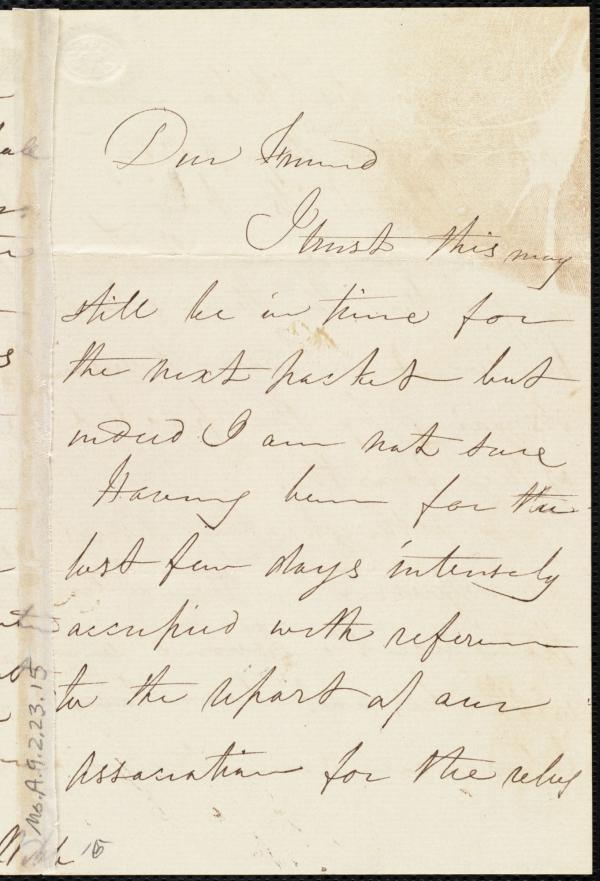 Dear Friend
I trust this may
still be in time for
the next packet but
indeed I am not sure
Having been for the
last few days intensely
occupied with referen
to the report of our
Association for the relief
Ms.A.9.2.23.15
15